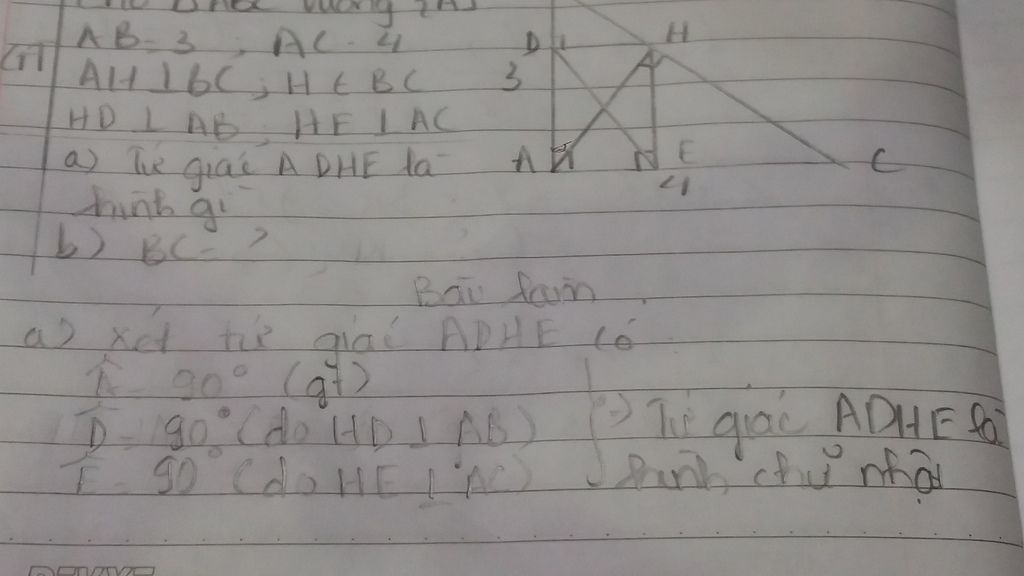 Δ ABC vuông tại A
GT
AB = 3, AC = 4
AH ⊥ BC, H ∈ BC
HD ⊥ AB, HE ⊥ AC
a) Tứ giác ADHE là
hình gì
b) BC = ?
D
H
3
A
E
C
4
Bài làm
a) xét tứ giác ADHE có
Â = 90° (gt)
D̂ = 90° (do HD ⊥ AB)
Ê = 90° (do HE ⊥ AC)
=> Tứ giác ADHE là
hình chữ nhật